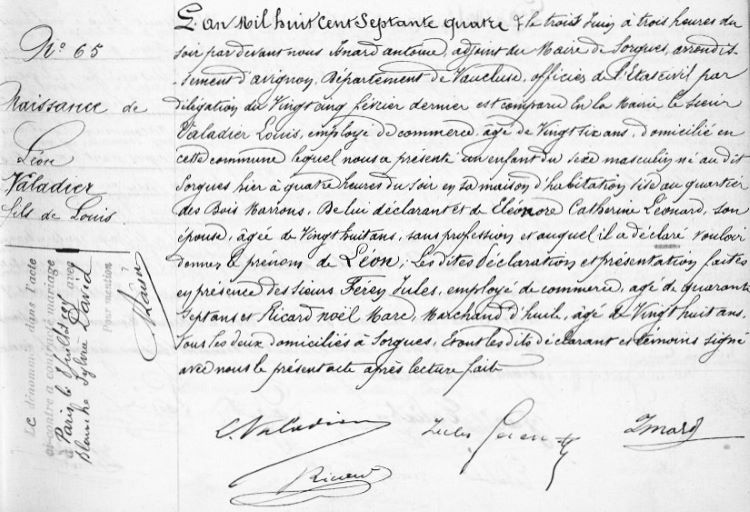 N° 65
Naissance de
Léon
Valadier
fils de Louis.
L'An Mil huit Cent Septante quatre & le trois Juin à trois heures du
soir par devant nous Imard antoine, adjoint du Maire de Sorgues, arrondis-
-sement d'avignon, Département de Vaucluse, officier de l'Etat civil par
délégation du Vingt cinq février dernier est comparu En la Mairie le sieur
Valadier Louis, employé de commerce, âgé de Vingt six ans, domicilié en
cette commune lequel nous a présenté un enfant du sexe masculin né au dit
Sorgues hier à quatre heures du soir en sa maison d'habitation sise au quartier
des Bois Marrons, De lui déclarant et de Eléonore Catherine Léonard, son
épouse, âgée de Vingt huit ans, sans profession et auquel il a déclaré vouloir
donner le prénom de Léon; Les dites déclaration et présentation faites
en présence des sieurs Ferey Jules, employé de commerce, age de quarante
Sept ans et Ricard noël Marc, Marchand d'huile, âgé de Vingt huit ans.
Tous les deux domiciliés à Sorgues, Et ont les dits déclarant et témoins signé
avec nous le présent acte après lecture fait
L. Valadier
Jules Ferey
Imard
Ricard
Le dénommé dans l'acte
ci-contre a contracté mariage
à Paris le Juillet avec
Blanche Sylvia David
Pour mention